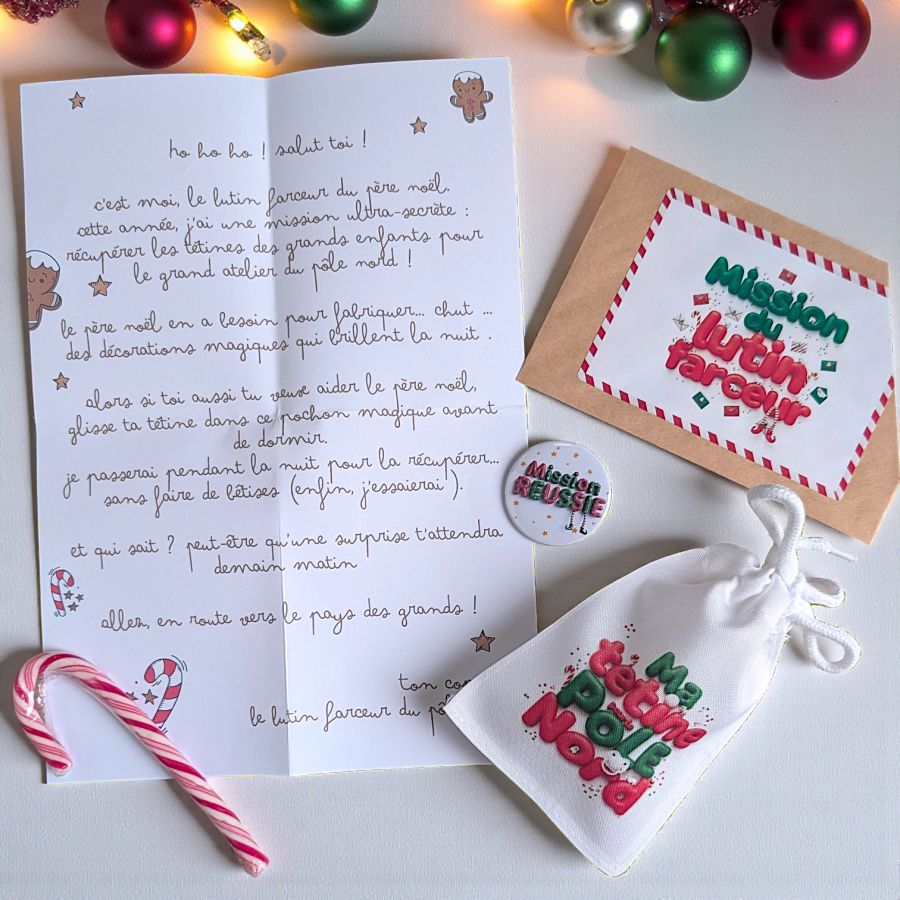 ho ho ho ! salut toi !
c'est moi, le lutin farceur du père noël.
cette année, j'ai une mission ultra-secrète :
récupérer les tétines des grands enfants pour
le grand atelier du pôle nord !
le père noël en a besoin pour fabriquer... chut ...
des décorations magiques qui brillent la nuit .
alors si toi aussi tu veux aider le père noël,
glisse ta tétine dans ce pochon magique avant
de dormir.
je passerai pendant la nuit pour la récupérer...
sans faire de bêtises (enfin, j'essaierai ).
et qui sait ? peut-être qu'une surprise t'attendra
demain matin
allez, en route vers le pays des grands !
ton
le lutin farceur du
Mission
du
lutin
farceur
Mission
REUSSIE
Ma
tétine
POLE
Nord